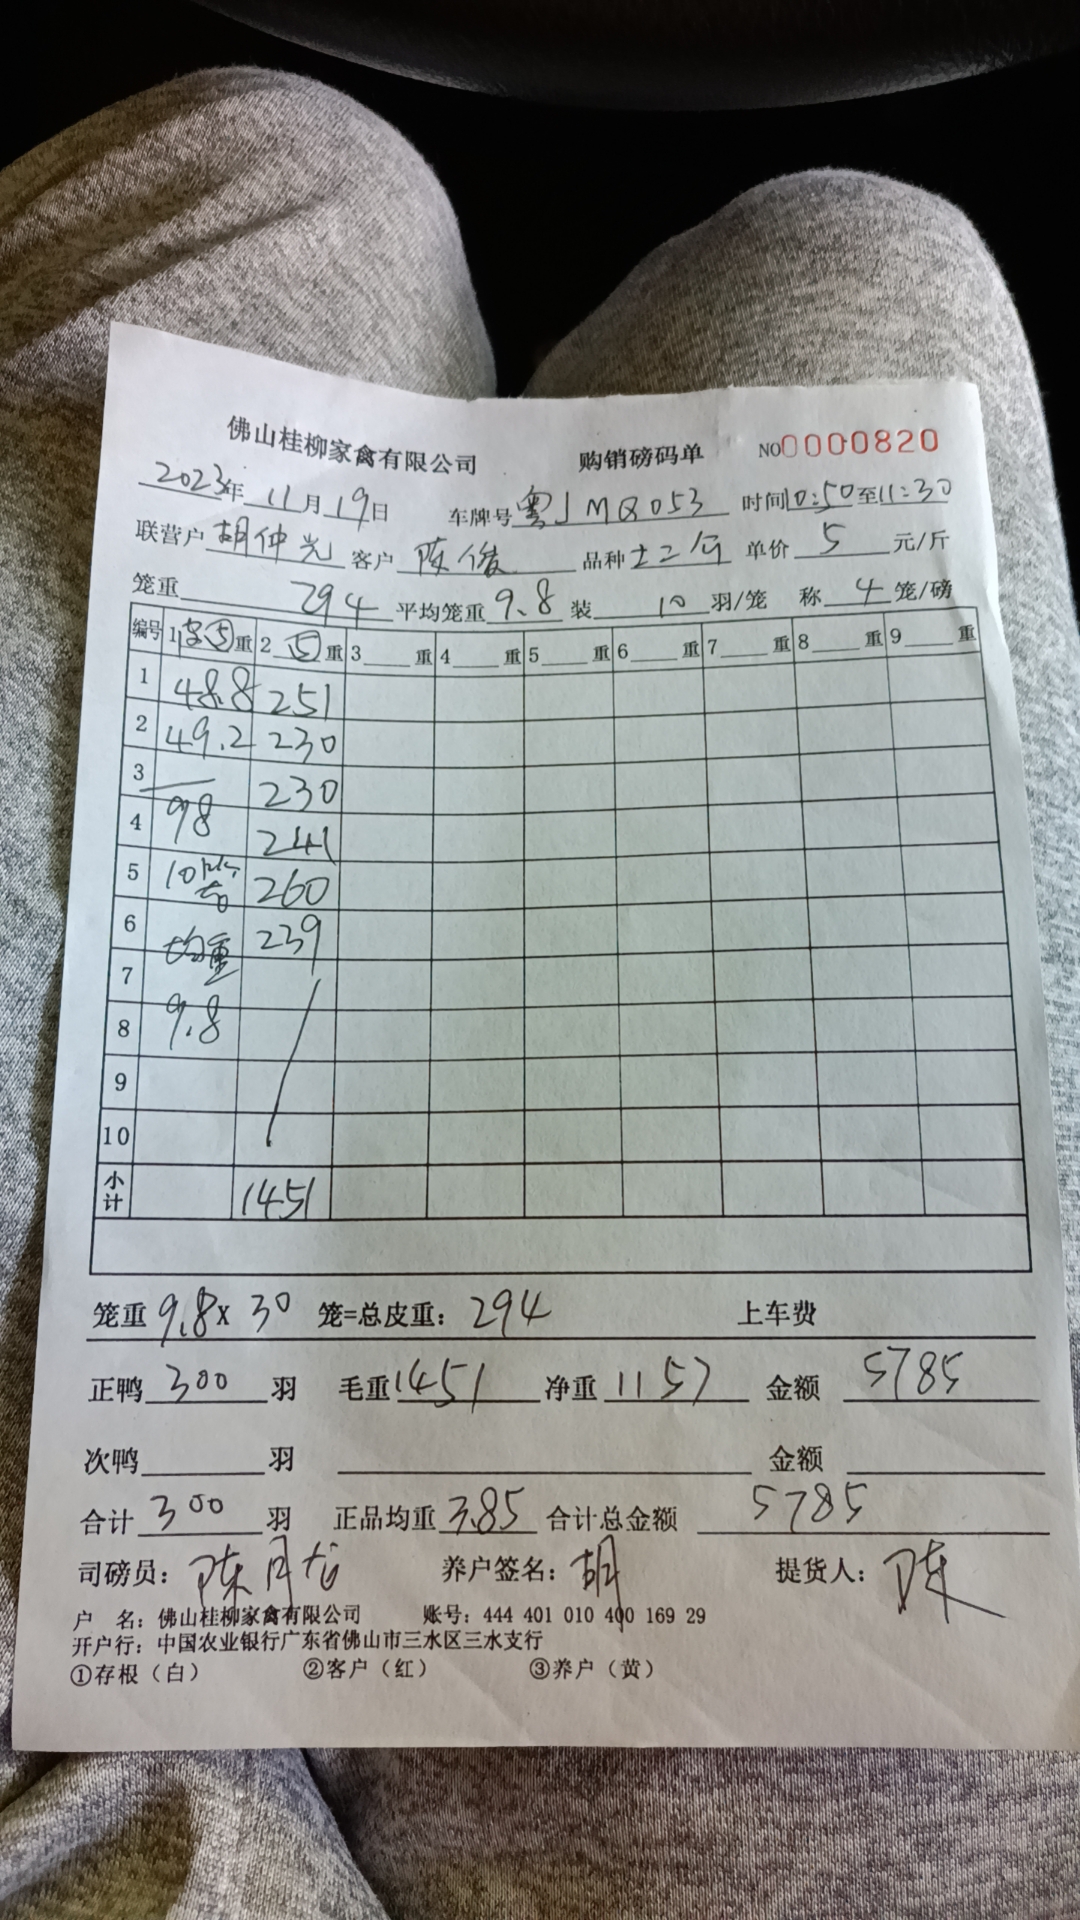 佛山桂柳家禽有限公司 购销磅码单 NO0000820
2023年 11月19日 车牌号 粤JMQ053 时间10:50至11:30
联营户 胡仲光 客户 陈俊 品种 土二 单价 5 元/斤
笼重 294 平均笼重 9.8 装 10 羽/笼 称 4 笼/磅
编号 1 重 2 重 3 重 4 重 5 重 6 重 7 重 8 重 9 重
1 48.8 251
2 49.2 230
3 230
4 98 241
5 10 260
6 均重 239
7
8 9.8
9
10
小计 1451
笼重 9.8 x 30 笼=总皮重: 294 上车费
正鸭 300 羽 毛重 1451 净重 1157 金额 5785
次鸭 羽 金额
合计 300 羽 正品均重 3.85 合计总金额 5785
司磅员: 陈月龙 养户签名: 胡 提货人: 陈
户 名: 佛山桂柳家禽有限公司 账号: 444 401 010 400 169 29
开户行: 中国农业银行广东省佛山市三水区三水支行
①存根（白） ②客户（红） ③养户（黄）